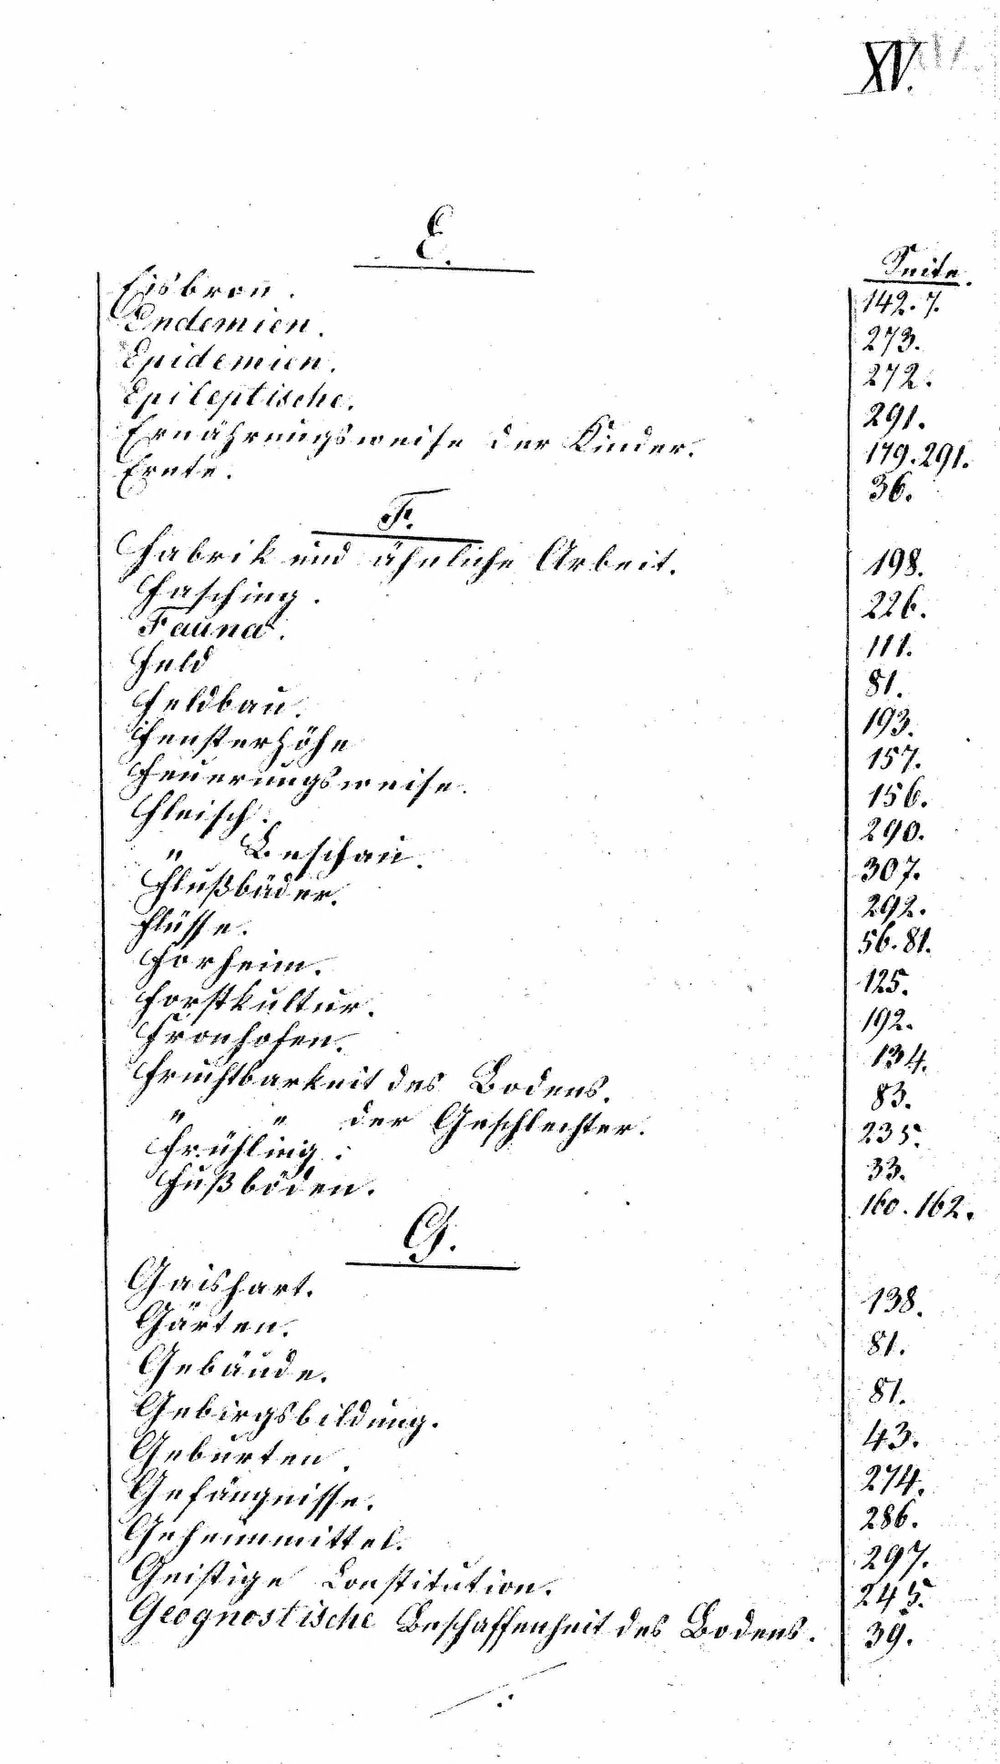 XV.
E.
Seite.
Eisbron. 142.7.
Endemien. 273.
Epidemien. 272.
Epileptische. 291.
Ernährungsweise der Kinder. 179.291.
Ernte. 36.
F.
Fabrik und ähnliche Arbeit. 198.
Fasching. 226.
Fauna. 111.
Feld 81.
Feldbau. 193.
Fensterhöhe 157.
Feuerungsweise. 156.
Fleisch. 290.
" Beschau. 307.
Flußbäder. 292.
Flüsse. 56.81.
Forheim. 125.
Forstkultur. 192.
Fronhofen. 134.
Fruchtbarkeit des Bodens. 83.
" " der Geschlechter. 235.
Frühling. 33.
Fußböden. 160.162.
G.
Gaishart. 138.
Gärten. 81.
Gebäude. 81.
Gebirgsbildung. 43.
Geburten. 274.
Gefängnisse. 286.
Geheimmittel. 297.
Geistige Constitution. 245.
Geognostische Beschaffenheit des Bodens. 39.